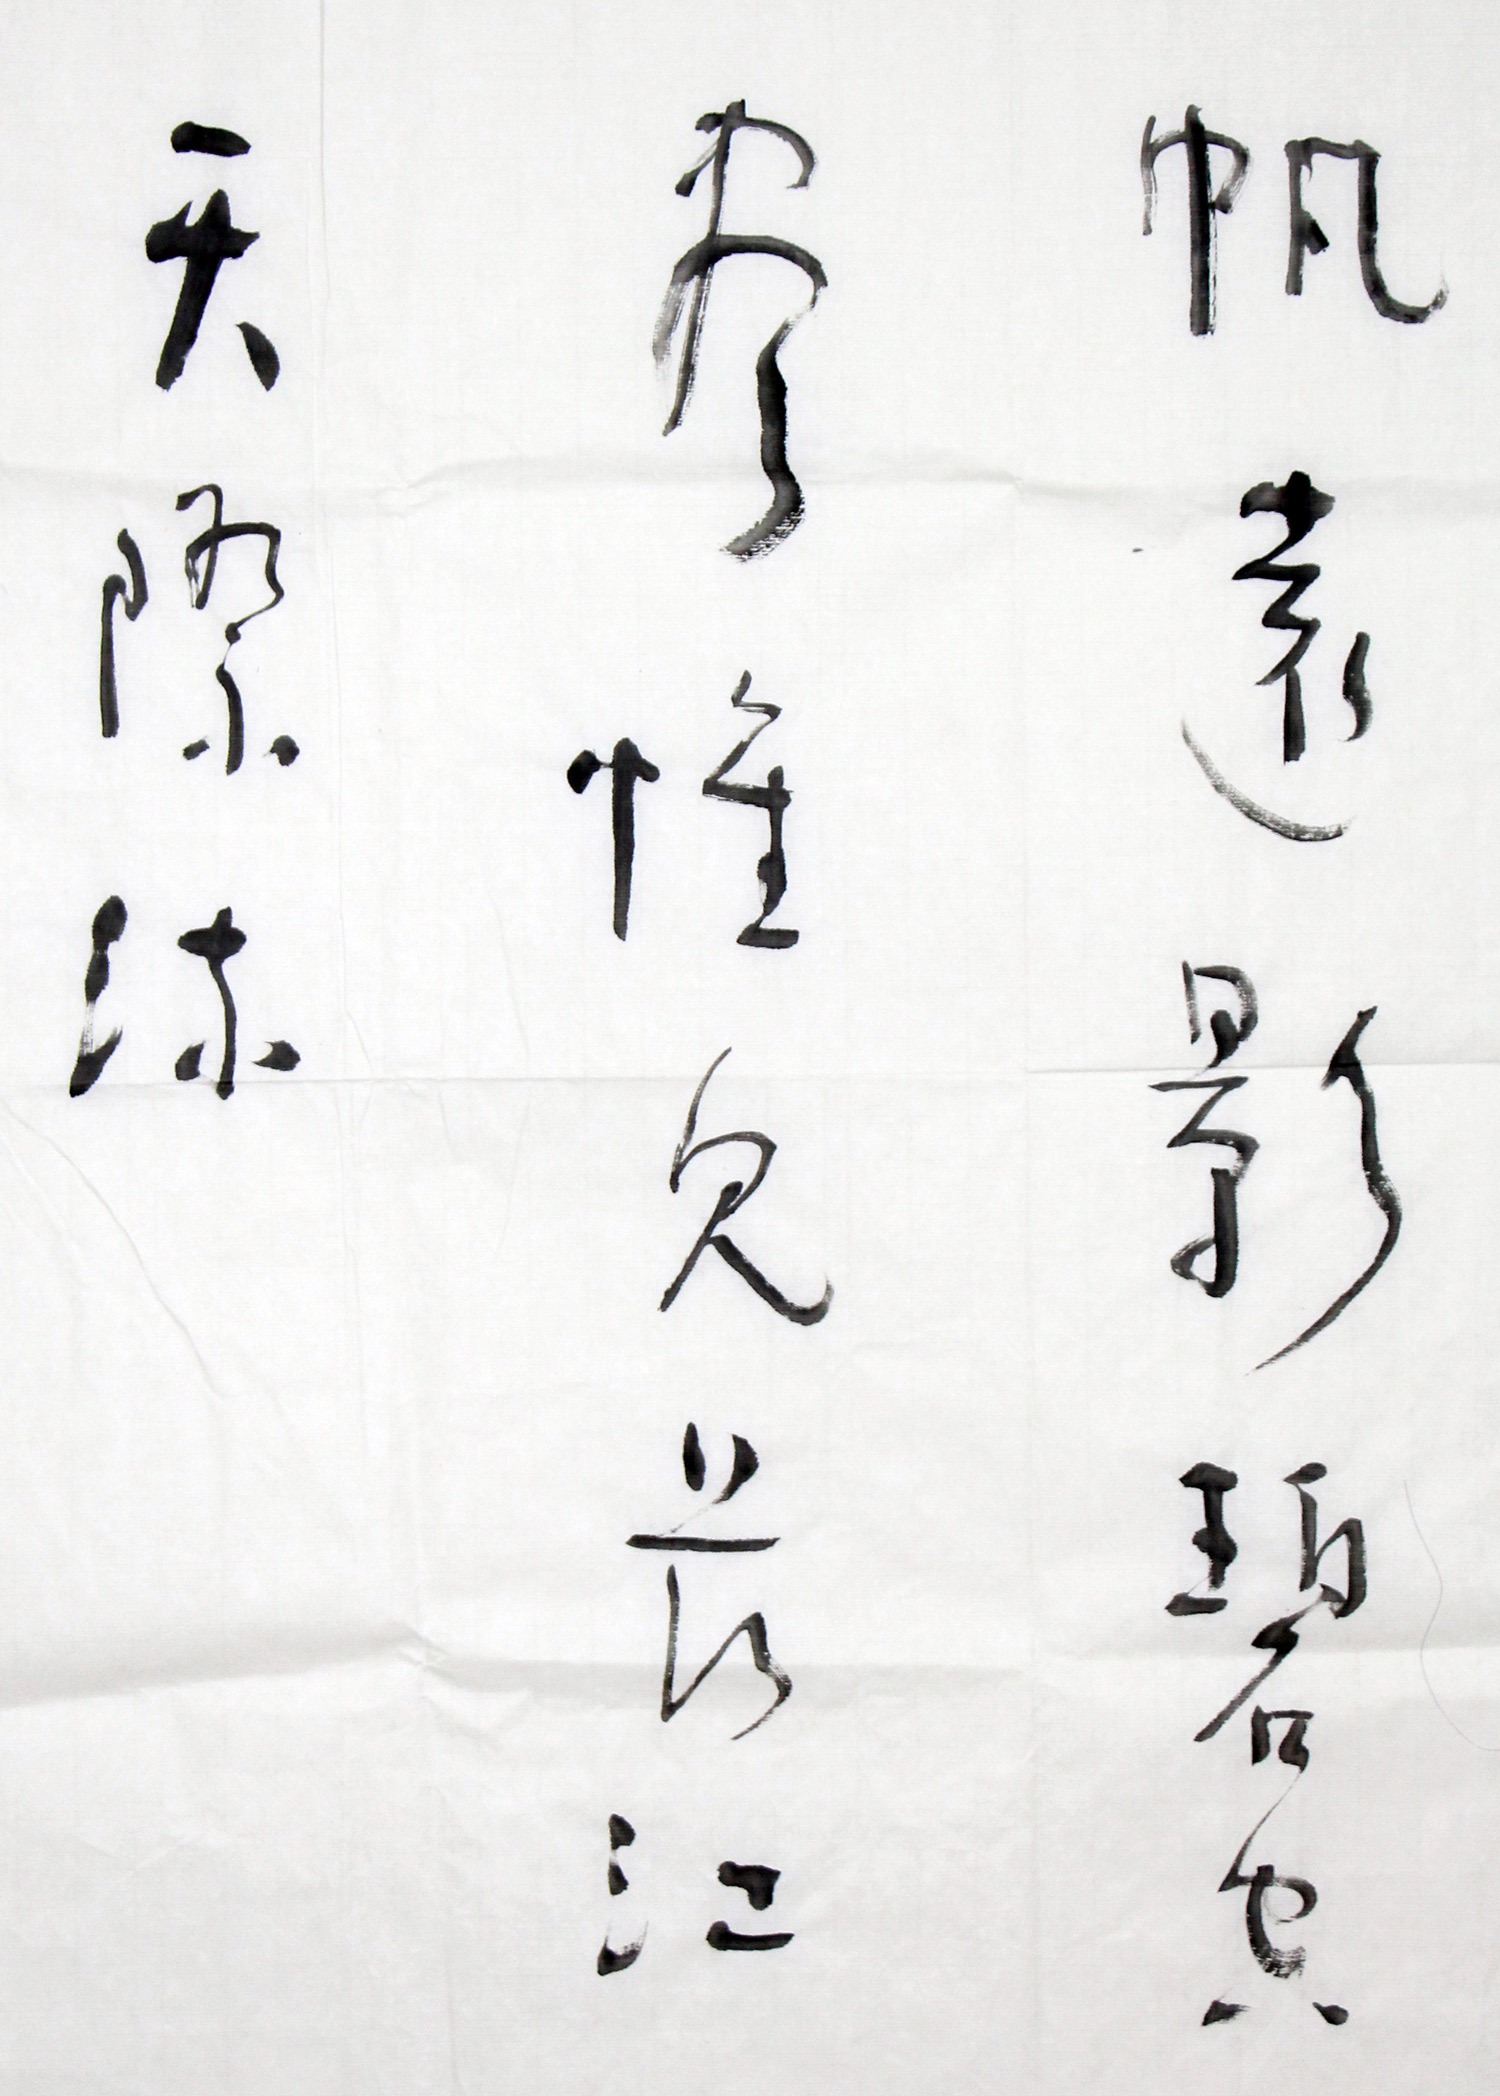 帆遠影碧空
盡惟見長江
天際流